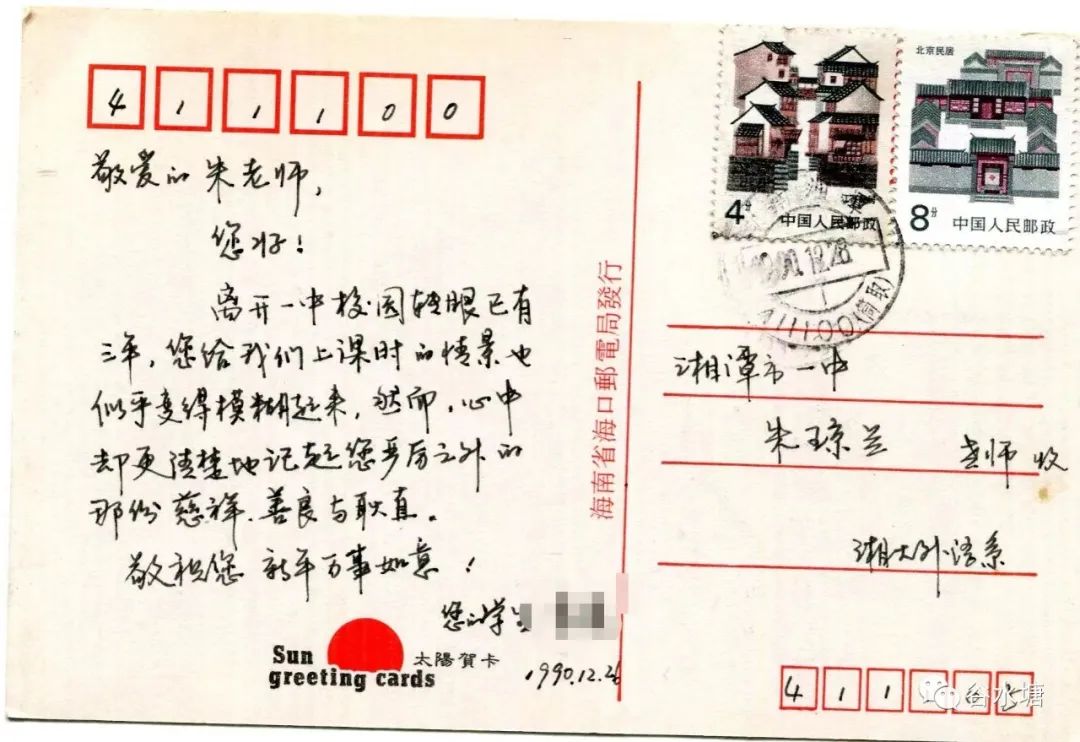 411100
敬爱的朱老师,
您好!
离开一中校园转眼已有
三年,您给我们上课时的情景也
似乎变得模糊起来,然而,心中
却更清楚地记起您严厉之外的
那份慈祥、善良与耿直。
敬祝您 新年万事如意!
您的学生
1990.12.26
Sun
greeting cards
太陽賀卡
海南省海口郵電局發行
4分
中国人民邮政
北京民居
8分
中国人民邮政
411100(筒取)
湘潭市一中
朱琼兰 老师 收
湘大外语系
411
谷水塘